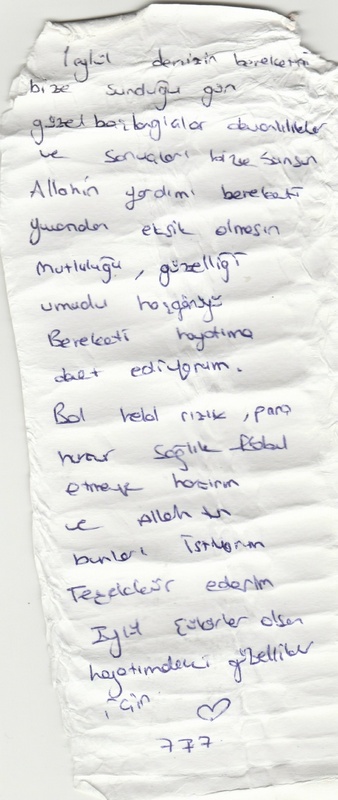 1 eylül denizin bereketini
bize sunduğu gün
güzel başlangıclar devamlılıklar
ve sonuçları bize sunsun
Allahın yardımı bereketi
yuvamdan eksik olmasın
Mutluluğu, güzelliği
umudu hoşgörüyü
Bereketi hayatıma
davet ediyorum.
Bol helal rızık, para
huzur Sağlık Kabul
etmeye hazırım
ve Allah tan
bunları istiyorum
Teşekkür ederim
Eylül Şükürler olsun
hayatımdaki güzellikler
için ♡
777